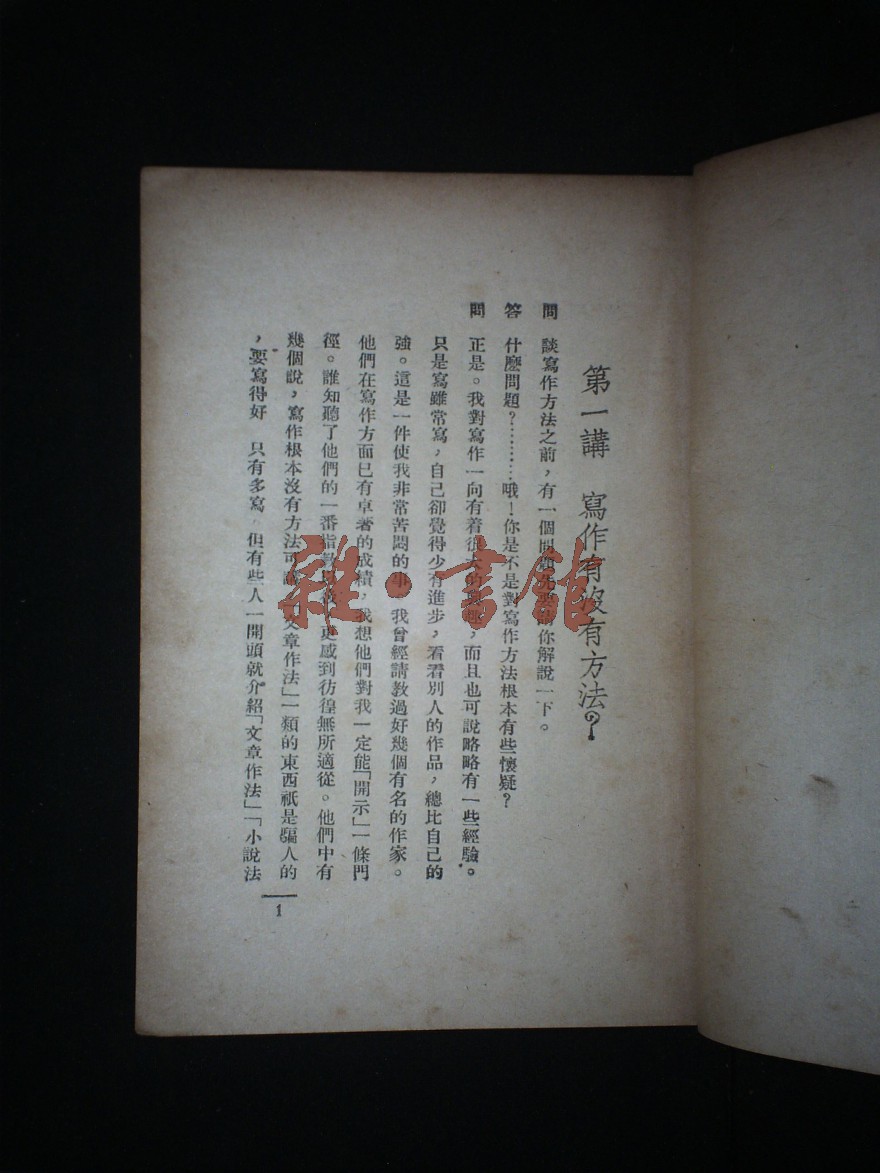 第一講 寫作有沒有方法？
問 談寫作方法之前，有一個問題先要請你解說一下。
答 什麼問題？………哦！你是不是對寫作方法根本有些懷疑？
問 正是。我對寫作一向有着很大的興趣，而且也可說略略有一些經驗。
只是寫雖常寫，自己卻覺得少有進步，看看別人的作品，總比自己的
強。這是一件使我非常苦悶的事。我曾經請教過好幾個有名的作家。
他們在寫作方面已有卓著的成績，我想他們對我一定能「開示」一條門
徑。誰知聽了他們的一番指教 更感到彷徨無所適從。他們中有
幾個說，寫作根本沒有方法可 「文章作法」一類的東西祇是騙人的
，要寫得好 只有多寫，但有些人一開頭就介紹「文章作法」「小說法
1
雜·書館